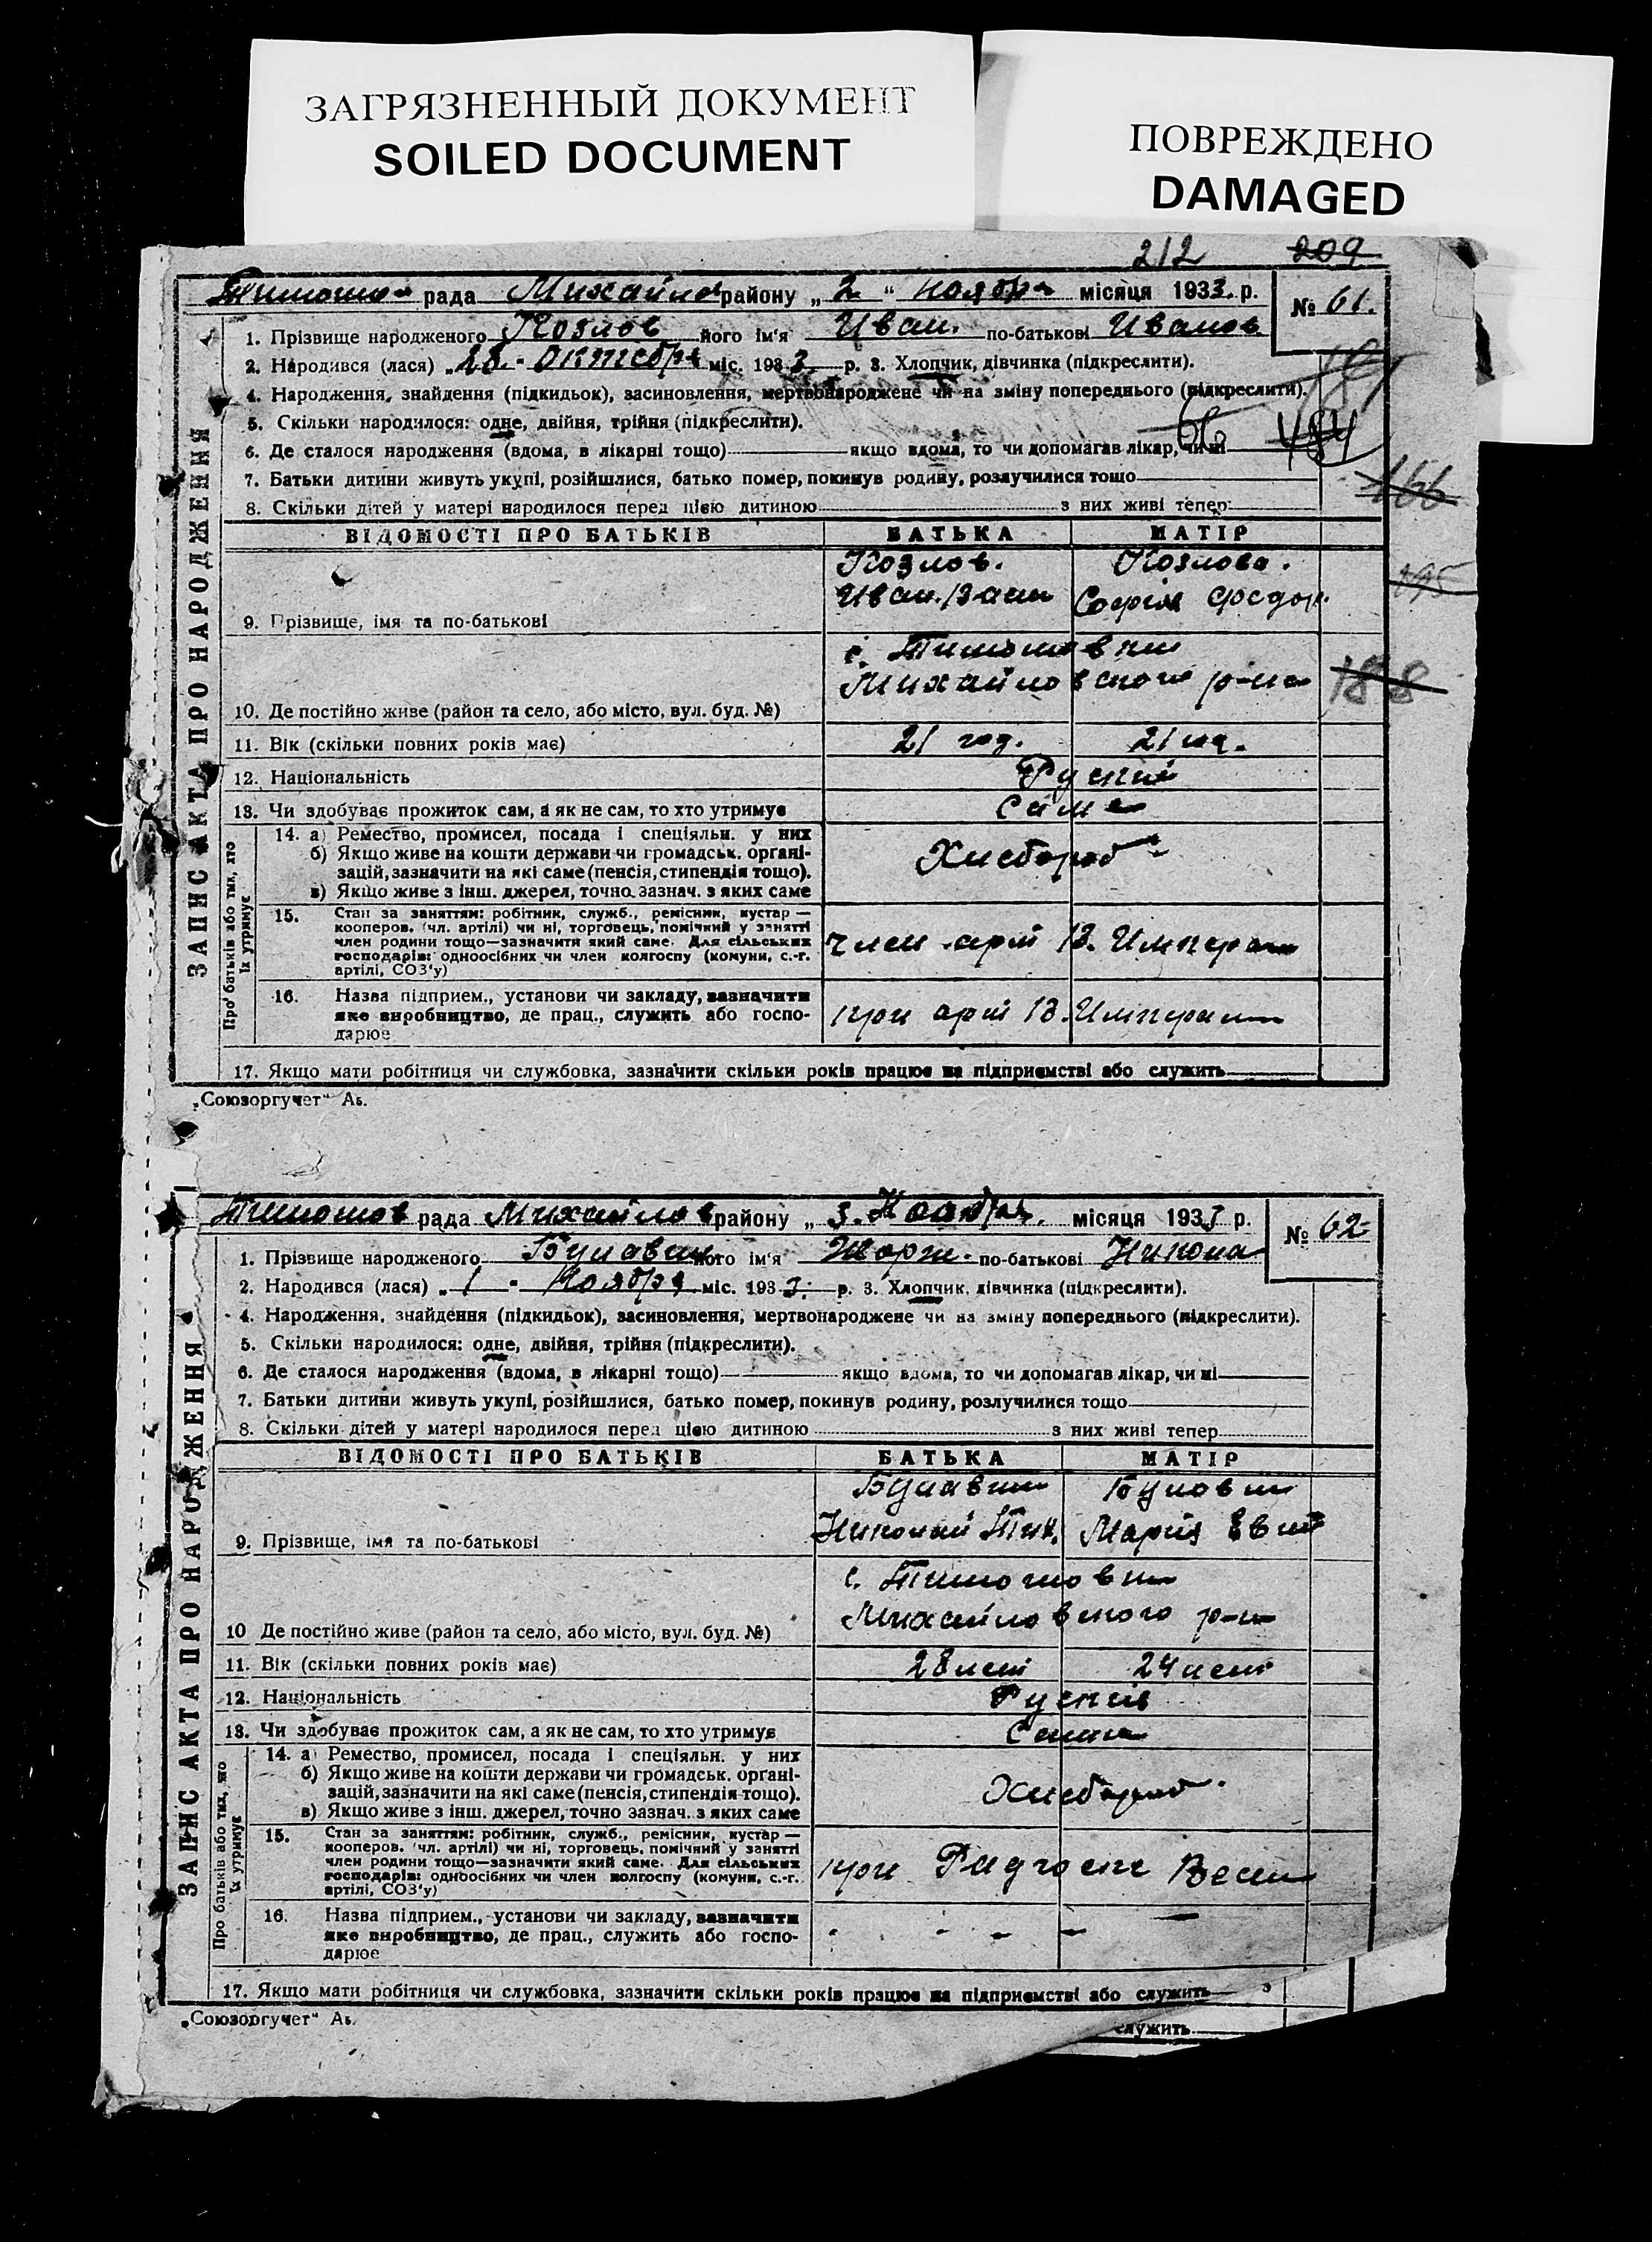 ЗАГРЯЗНЕННЫЙ ДОКУМЕНТ
SOILED DOCUMENT
ПОВРЕЖДЕНО
DAMAGED
212 209
рада району „ 2 “ ноября місяця 1933 р.
№ 61.
1. Прізвище народженого Козлов його ім'я Иван. по-батькові Иванов.
2. Народився (лася) „ - Октебря міс. 1933 р. 3. Хлопчик, дівчинка (підкреслити).
4. Народження, знайдення (підкидьок), засиновлення, мертвонароджене чи на зміну попереднього (підкреслити).
5. Скільки народилося: одне, двійня, трійня (підкреслити).
6. Де сталося народження (вдома, в лікарні тощо) якщо вдома, то чи допомагав лікар, чи ні
7. Батьки дитини живуть укупі, розійшлися, батько помер, покинув родину, розлучилися тощо
166
8. Скільки дітей у матері народилося перед цією дитиною з них живі тепер
ЗАПИС АКТА ПРО НАРОДЖЕННЯ
ВІДОМОСТІ ПРО БАТЬКІВ БАТЬКА МАТІР
Козлов. Козлова.
Иван. Софія Федор.
9. Прізвище, імя та по-батькові
с. Тимошовки
Михайловского р-на
188
10. Де постійно живе (район та село, або місто, вул. буд. №)
11. Вік (скільки повних років має) 21 год. 21 год.
12. Національність Руский
13. Чи здобуває прожиток сам, а як не сам, то хто утримує Сами
Про батьків або тих, хто їх утримує
14. а) Ремество, промисел, посада і спеціяльн. у них
б) Якщо живе на кошти держави чи громадськ. органі-
зацій, зазначити на які саме (пенсія, стипендія тощо).
в) Якщо живе з інш. джерел, точно зазнач. з яких саме
Хлебороб
15. Стан за заняттям: робітник, служб., ремісник, кустар —
кооперов. (чл. артілі) чи ні, торговець, помічний у занятті
член родини тощо—зазначити який саме. Для сільських
господарів: одноосібних чи член колгоспу (комуни, с.-г.
артілі, СОЗ'у)
член арт
16. Назва підприєм., установи чи закладу, зазначити
яке виробництво, де прац., служить або госпо-
дарює
при арт
17. Якщо мати робітниця чи службовка, зазначити скільки років працює на підприємстві або служить
„Союзоргучет“ Аь.
Тимошов рада Михайлов району „ 3. Ноября. місяця 1933 р.
№ 62
1. Прізвище народженого його ім'я Жорж. по-батькові Никола
2. Народився (лася) „ 1 - Ноября міс. 1933. р. 3. Хлопчик, дівчинка (підкреслити).
4. Народження, знайдення (підкидьок), засиновлення, мертвонароджене чи на зміну попереднього (підкреслити).
5. Скільки народилося: одне, двійня, трійня (підкреслити).
6. Де сталося народження (вдома, в лікарні тощо) якщо вдома, то чи допомагав лікар, чи ні
7. Батьки дитини живуть укупі, розійшлися, батько помер, покинув родину, розлучилися тощо
8. Скільки дітей у матері народилося перед цією дитиною з них живі тепер
ЗАПИС АКТА ПРО НАРОДЖЕННЯ
ВІДОМОСТІ ПРО БАТЬКІВ БАТЬКА МАТІР
Булавин
Николай Тим. Марія
9. Прізвище, імя та по-батькові
с. Тимошовки
Михайловского р-н
10 Де постійно живе (район та село, або місто, вул. буд. №)
11. Вік (скільки повних років має) 28 лет 24 лет
12. Національність Руский
13. Чи здобуває прожиток сам, а як не сам, то хто утримує Сами
Про батьків або тих, хто їх утримує
14. а) Ремество, промисел, посада і спеціяльн. у них
б) Якщо живе на кошти держави чи громадськ. органі-
зацій, зазначити на які саме (пенсія, стипендія тощо).
в) Якщо живе з інш. джерел, точно зазнач. з яких саме
Хлебороб.
15. Стан за заняттям: робітник, служб., ремісник, кустар —
кооперов. (чл. артілі) чи ні, торговець, помічний у занятті
член родини тощо—зазначити який саме. Для сільських
господарів: одноосібних чи член колгоспу (комуни, с.-г.
артілі, СОЗ'у)
при
16. Назва підприєм., установи чи закладу, зазначити
яке виробництво, де прац., служить або госпо-
дарює
17. Якщо мати робітниця чи службовка, зазначити скільки років працює на підприємстві або служить
„Союзоргучет“ Аь.
служить